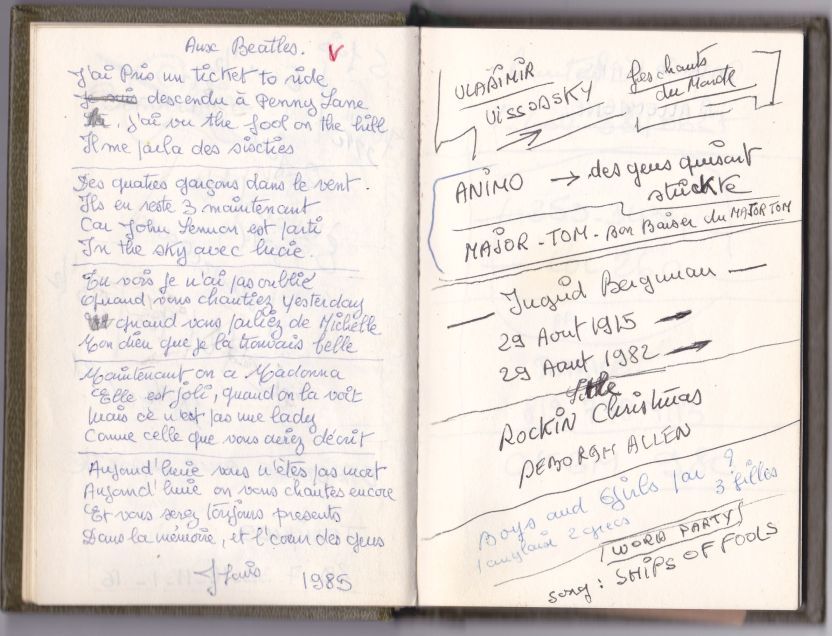 Aux Beatles. V
J'ai Pris un ticket to ride
Je suis descendu à Penny Lane
j'ai vu the fool on the hill
Il me parla des sixties
Des quatres garçons dans le vent.
Ils en reste 3 maintenant
Car John Lennon est parti
In the sky avec lucie.
Tu vois Je n'ai pas oublié
Quand vous chantiez yesterday
quand vous parliez de Michelle
Mon dieu que je la trouvais belle
Maintenant on a Madonna
Elle est joli, quand on la voit
Mais ce n'est pas une lady
Comme celle que vous aviez décrit
Aujourd'huie vous n'êtes pas mort
Aujourd'huie on vous chantes encore
Et vous serez toujours presents
Dans la mémoire, et l'coeur des gens
1985
VLADIMIR
VISSODSKY
les chants
du Monde
ANIMO → des gens qui
MAJOR-TOM. son Baiser du MAJOR TOM
— Ingrid Bergman —
29 Aout 1915 →
29 Aout 1982 →
little
ROCKIN Christmas
DEBORAH ALLEN
Boys and Girls ?
1 anglais 2 grecs 3 filles
WORD PARTY
song : SHIPS OF FOOLS